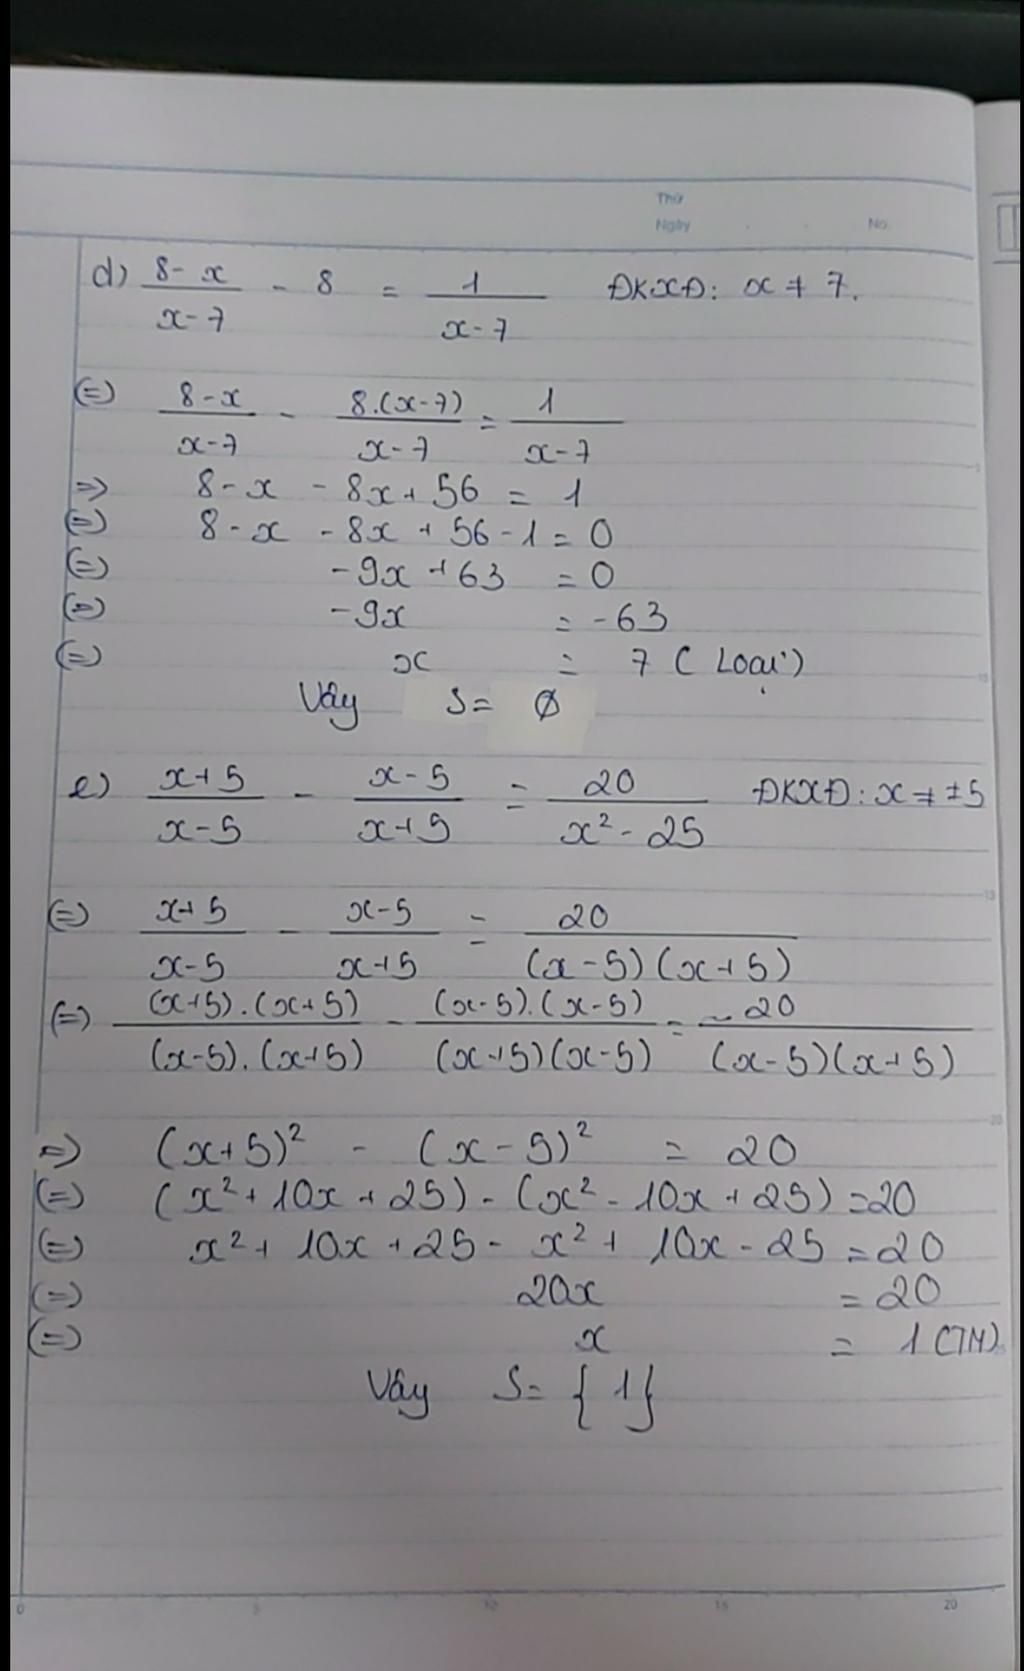 Thứ
Ngày . . No.
d) \frac{8-x}{x-7} - 8 = \frac{1}{x-7} ĐKXĐ: x ≠ 7.
(=) \frac{8-x}{x-7} - \frac{8.(x-7)}{x-7} = \frac{1}{x-7}
=> 8-x - 8x + 56 = 1
(=) 8-x - 8x + 56 - 1 = 0
(=) -9x + 63 = 0
(=) -9x = -63
(=) x = 7 (Loại)
Vậy S = ∅
e) \frac{x+5}{x-5} - \frac{x-5}{x+5} = \frac{20}{x²-25} ĐKXĐ: x ≠ ±5
(=) \frac{x+5}{x-5} - \frac{x-5}{x+5} = \frac{20}{(x-5)(x+5)}
(=) \frac{(x+5).(x+5)}{(x-5).(x+5)} - \frac{(x-5).(x-5)}{(x+5)(x-5)} = \frac{20}{(x-5)(x+5)}
=> (x+5)² - (x-5)² = 20
(=) (x²+10x+25) - (x²-10x+25) = 20
(=) x² + 10x + 25 - x² + 10x - 25 = 20
(=) 20x = 20
(=) x = 1 (TM)
Vậy S = {1}
0 5 10 15 20